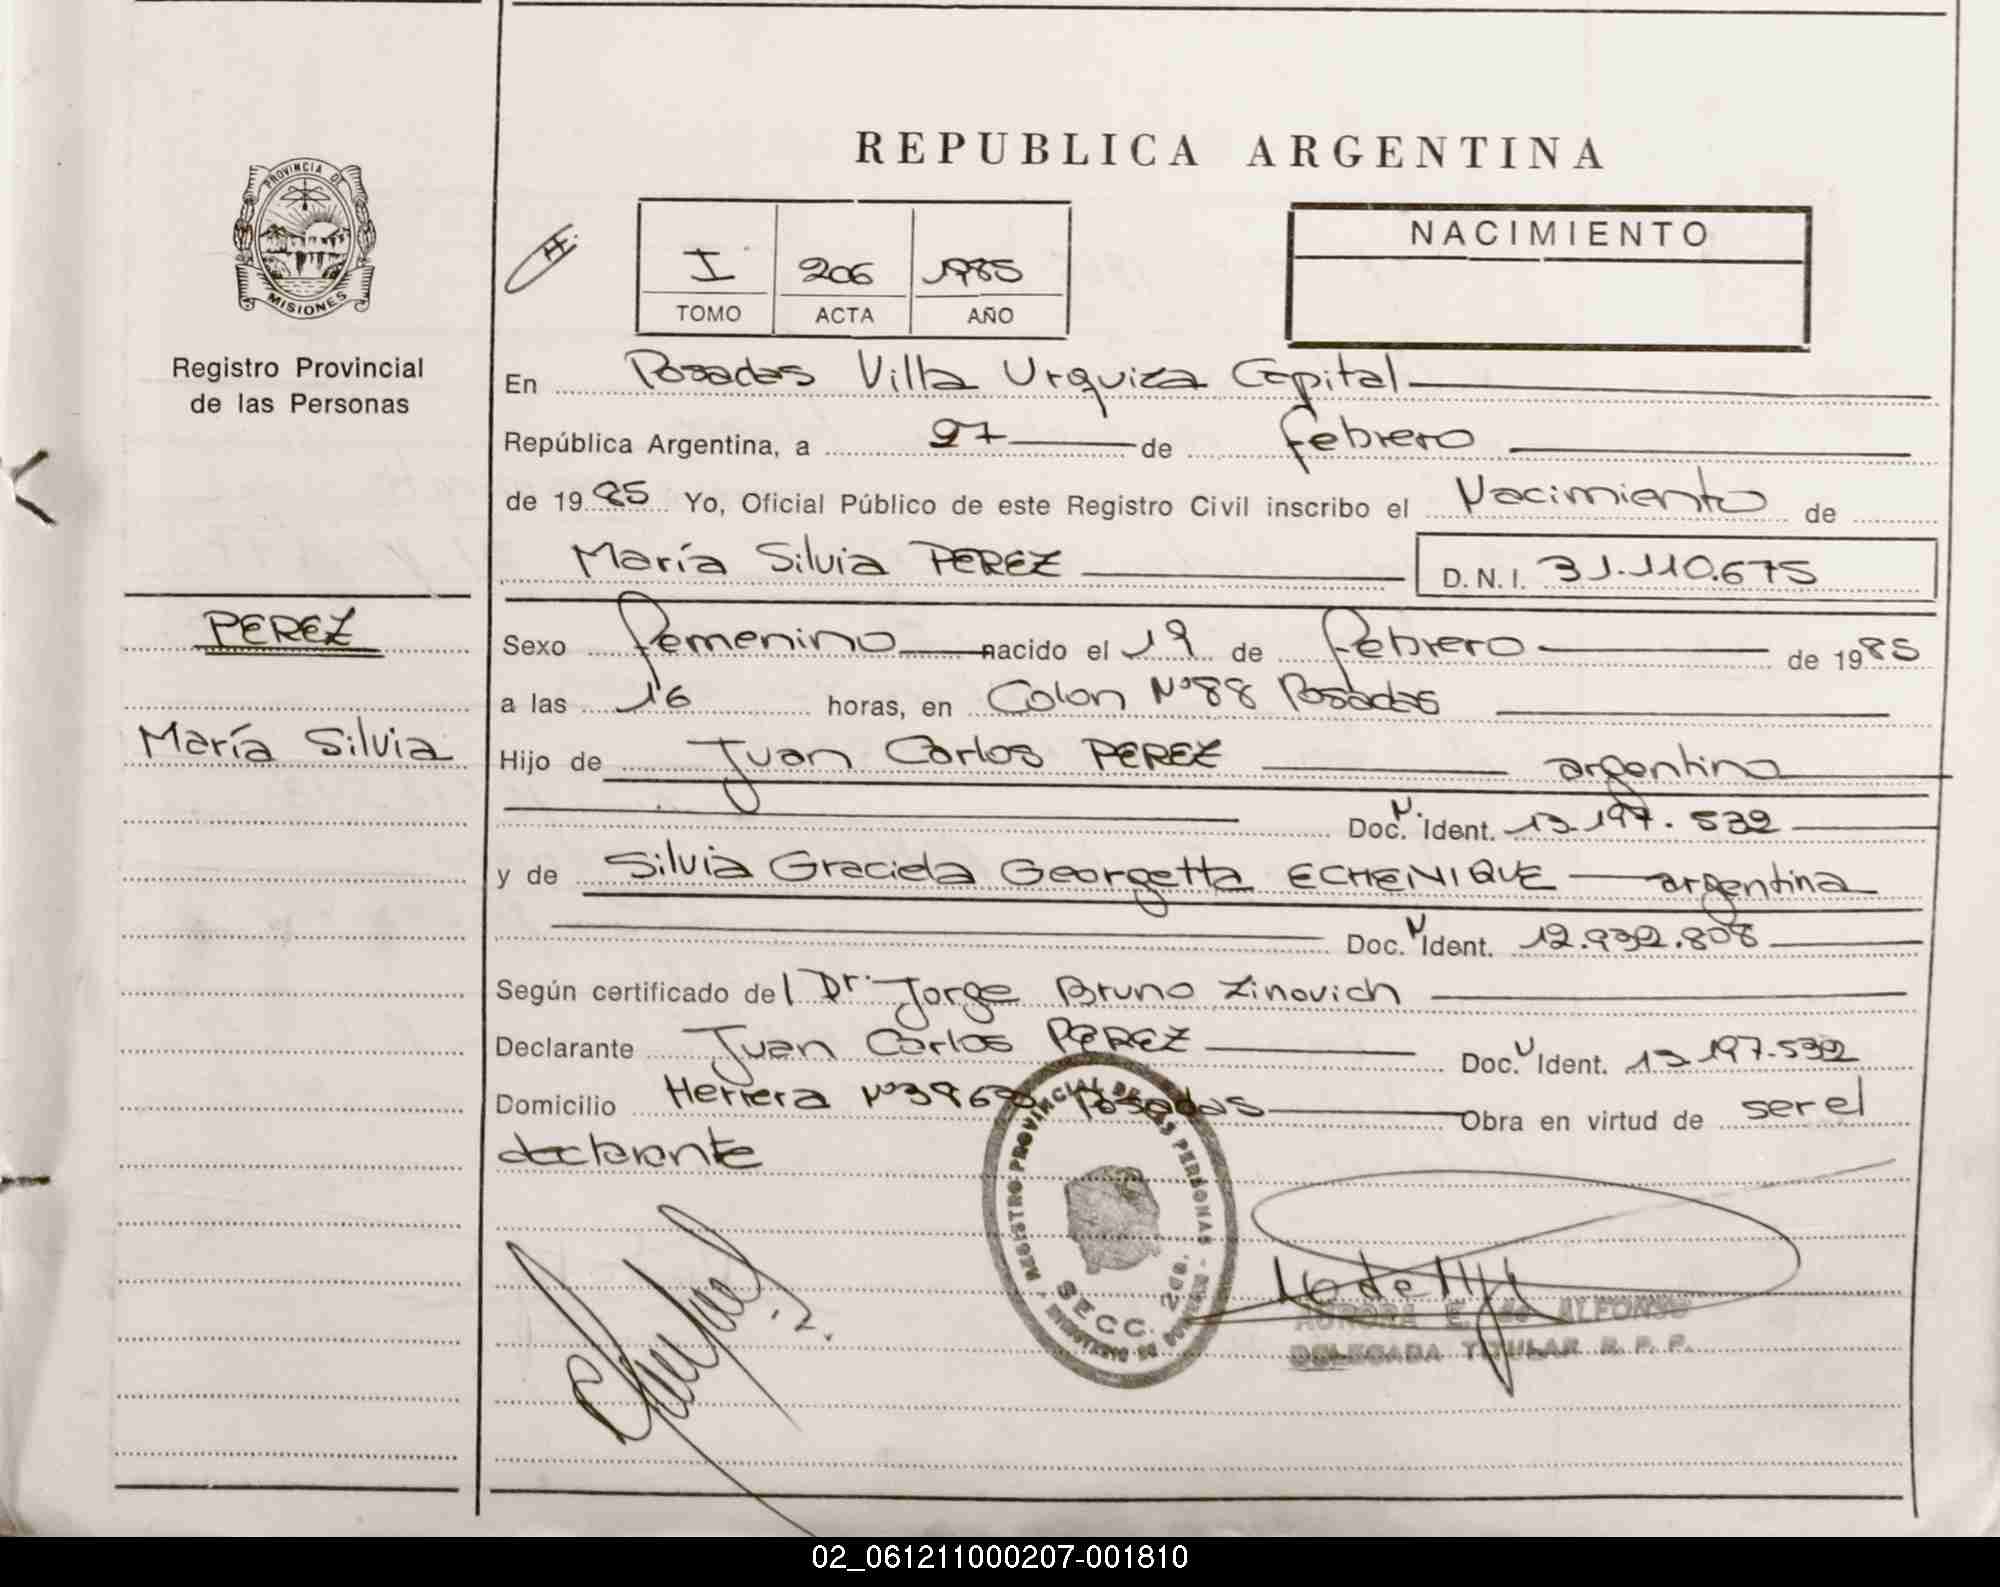 REPUBLICA ARGENTINA
PROVINCIA DE
MISIONES
Registro Provincial
de las Personas
I 206 1985
TOMO ACTA AÑO
NACIMIENTO
En Posadas Villa Urquiza Capital
República Argentina, a 27 de febrero
de 1985 Yo, Oficial Público de este Registro Civil inscribo el Nacimiento de
María Silvia PEREZ D.N.I. 31.110.675
PEREZ
María Silvia
Sexo femenino nacido el 19 de febrero de 1985
a las 16 horas, en Colon Nº 88 Posadas
Hijo de Juan Carlos PEREZ argentino
Doc. N. Ident. 13.197.532
y de Silvia Graciela Georgetta ECHENIQUE argentina
Doc. N Ident. 12.932.808
Según certificado del Dr. Jorge Bruno Zinovich
Declarante Juan Carlos PEREZ Doc. Ident. 13.197.532
Domicilio Herrera Posadas Obra en virtud de ser el
declarante
REGISTRO PROVINCIAL DE LAS PERSONAS
SECC. 2
AURORA E. de ALFONSO
DELEGADA TITULAR R. P. P.
02_061211000207-001810